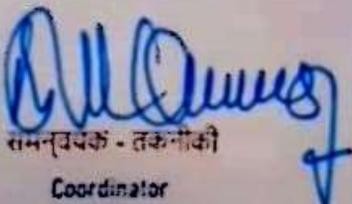 समन्वयक - तकनीकी
Coordinator